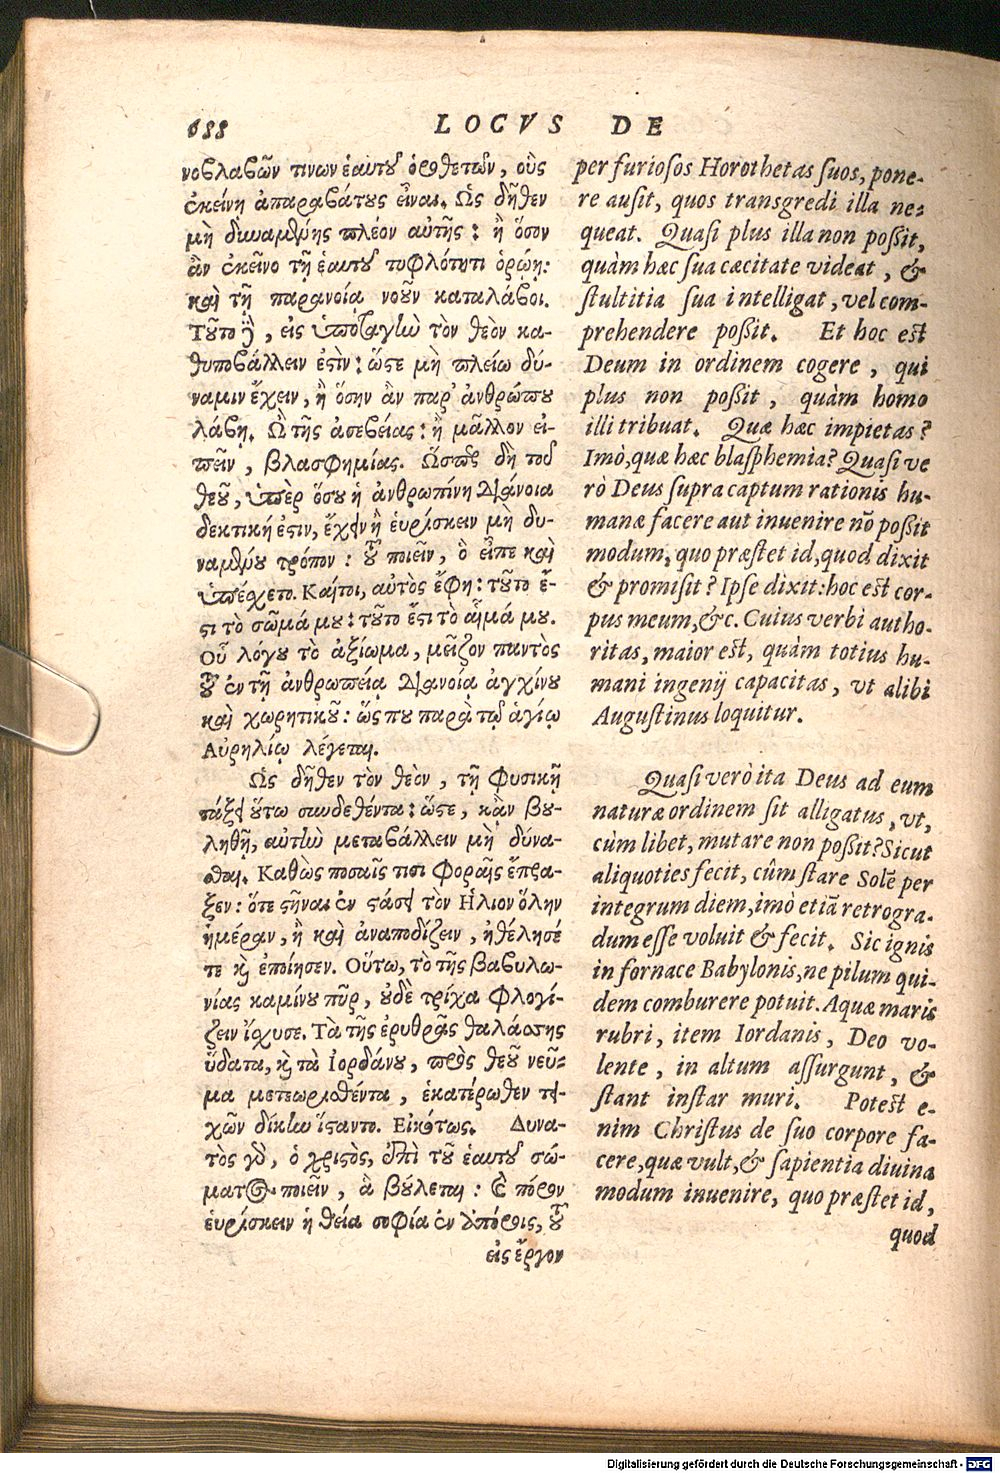 688
LOCVS DE
νοβλαβῶν τινων ἑαυτοῦ ὁροθετῶν, οὓς
ἐκείνη ἀπαραβάτους εἶναι. Ὡς δῆθεν
μὴ δυναμένης πλέον αὐτῆς: ἢ ὅσον
ἂν ἐκεῖνο τῇ ἑαυτοῦ τυφλότητι ὁρῴη:
καὶ τῇ παρανοίᾳ νοῦν καταλάβοι.
Τοῦτο γὰρ, εἰς ὑποταγὴν τὸν θεὸν κα-
θυποβάλλειν ἐστὶν: ὥστε μὴ πλείω δύ-
ναμιν ἔχειν, ἢ ὅσην ἂν παρ’ ἀνθρώπου
λάβῃ. Ὢ τῆς ἀσεβείας: ἢ μᾶλλον εἰ-
πεῖν, βλασφημίας. Ὥσπερ δὴ τοῦ
θεοῦ, ὑπὲρ ὅσου ἡ ἀνθρωπίνη διάνοια
δεκτική ἐστιν, ἔχειν ἢ ἑυρίσκειν μὴ δυ-
ναμένου τρόπον: τοῦ ποιεῖν, ὃ εἶπε καὶ
ὑπέσχετο. Καίτοι, αὐτὸς ἔφη: τοῦτο ἔ-
στι τὸ σῶμά μου: τοῦτο ἔστι τὸ αἷμά μου.
Οὗ λόγου τὸ ἀξίωμα, μεῖζον παντὸς
τοῦ ἐν τῇ ἀνθρωπείᾳ διανοίᾳ ἀγχίνου
καὶ χωρητικοῦ: ὥς που παρὰ τῷ ἁγίῳ
Αὐρηλίῳ λέγεται.
Ὡς δῆθεν τὸν θεὸν, τῇ φυσικῇ
τάξει οὕτω συνδεθέντα: ὥστε, κἂν βου-
ληθῇ, αὐτὴν μεταβάλλειν μὴ δύνα-
σθαι. Καθὼς ποσαῖς τισι φοραῖς ἔπρα-
ξεν: ὅτε στῆναι ἐν στάσει τὸν Ἥλιον ὅλην
ἡμέραν, ἢ καὶ ἀναποδίζειν, ἠθέλησέ
τε καὶ ἐποίησεν. Οὕτω, τὸ τῆς βαβυλω-
νίας καμίνου πῦρ, οὐδὲ τρίχα φλογί-
ζειν ἴσχυσε. Τὰ τῆς ἐρυθρᾶς θαλάσσης
ὕδατα, καὶ τὰ Ἰορδάνου, πρὸς θεοῦ νεῦ-
μα μετεωρισθέντα, ἑκατέρωθεν τει-
χῶν δίκην ἵσταντο. Εἰκότως. Δυνα-
τὸς γὰρ, ὁ χριστὸς, ἐπὶ τοῦ ἑαυτοῦ σώ-
ματος ποιεῖν, ἃ βούλεται: καὶ πόρον
ἑυρίσκειν ἡ θεία σοφία ἐν ἀπόροις, τοῦ
εἰς ἔργον
per furiosos Horothetas suos, pone-
re ausit, quos transgredi illa ne-
queat. Quasi plus illa non possit,
quàm hæc sua cæcitate videat, &
stultitia sua intelligat, vel com-
prehendere possit. Et hoc est
Deum in ordinem cogere, qui
plus non possit, quàm homo
illi tribuat. Quæ hæc impietas?
Imò, quæ hæc blasphemia? Quasi ve
rò Deus supra captum rationis hu-
manæ facere aut inuenire nõ possit
modum, quo præstet id, quod dixit
& promisit? Ipse dixit: hoc est cor-
pus meum, &c. Cuius verbi autho-
ritas, maior est, quàm totius hu-
mani ingenij capacitas, vt alibi
Augustinus loquitur.
Quasi verò ita Deus ad eum
naturæ ordinem sit alligatus, vt,
cùm libet, mutare non possit? Sicut
aliquoties fecit, cûm stare Solē per
integrum diem, imò etiã retrogra-
dum esse voluit & fecit. Sic ignis
in fornace Babylonis, ne pilum qui-
dem comburere potuit. Aquæ maris
rubri, item Iordanis, Deo vo-
lente, in altum assurgunt, &
stant instar muri. Potest e-
nim Christus de suo corpore fa-
cere, quæ vult, & sapientia diuina
modum inuenire, quo præstet id,
quod
Digitalisierung gefördert durch die Deutsche Forschungsgemeinschaft - DFG